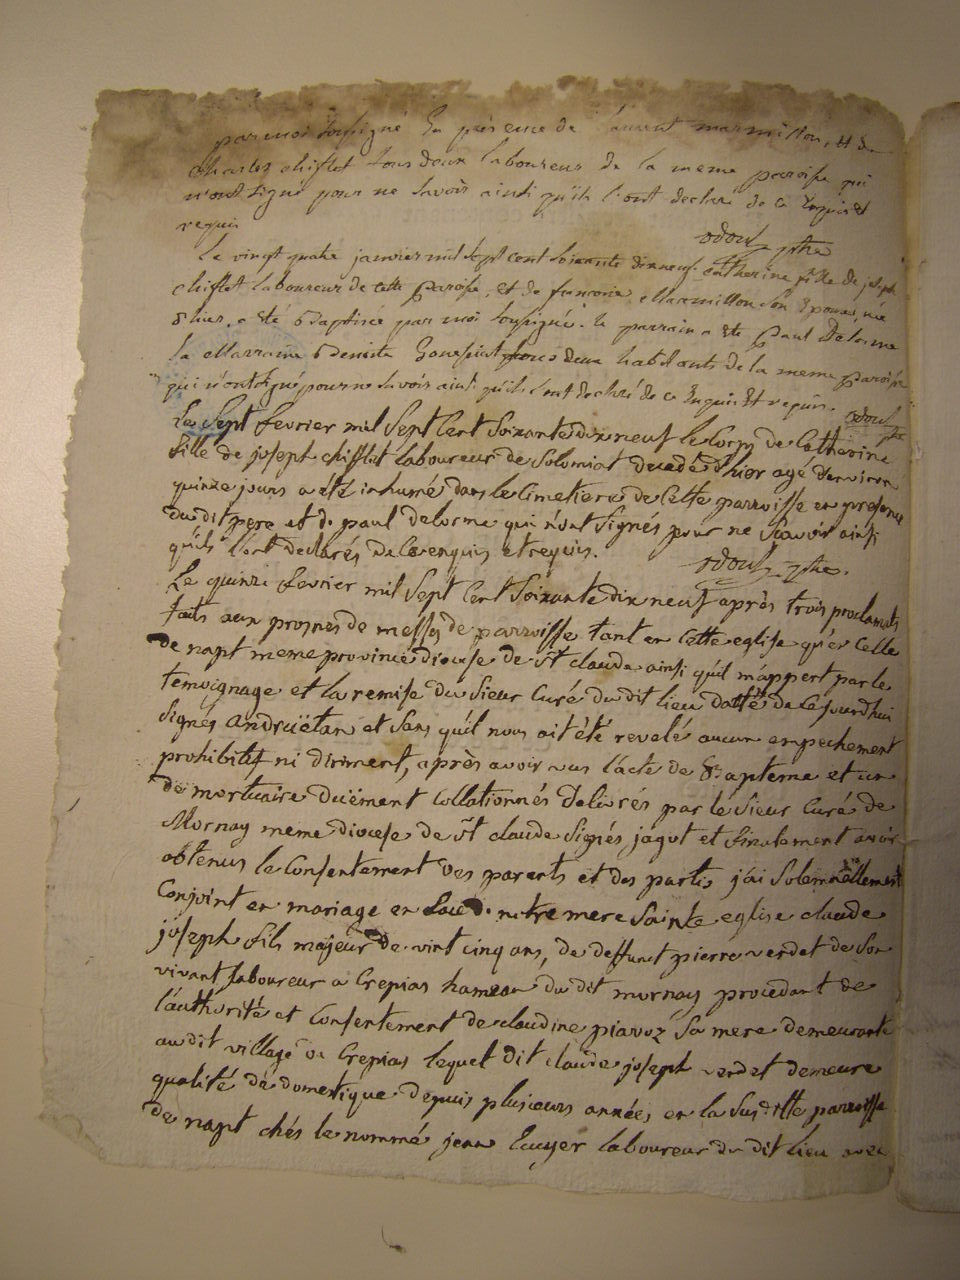 par moi soussigné En présence de Laurent marmillon, et de
Charles chiflet tous deux laboureurs de la meme paroisse qui
n'ont signé pour ne savoir ainsi qu'ils l'ont declaré de ce Enquis et
requis odouf ptre
Le vingt quatre janvier mil sept cent soixante dixneuf catherine fille de joseph
chiflet laboureur de cette paroisse, et de françoise Marmillon son Epouse, née
hier, a eté Baptisée par moi soussigné. le parrain a eté paul Delorme
la Marraine denise tous deux habitants de la meme paroisse
qui n'ont signé pour ne savoir ainsi qu'ils l'ont declaré de ce Enquis Et requis. odouf ptre
Le Sept fevrier mil Sept Cent Soixante dix neuf le Corps de Catherine
fille de joseph chifflet laboureur de Solomiat decedé d'hier agé d'environ
quinze jours a été inhumé dans le Cimetiere de Cette parroisse en presence
du dit pere et de paul delorme qui n'ont Signés pour ne Scavoir ainsi
qu'ils l'ont declarés de Ce enquis et requis. odouf ptre.
Le quinze fevrier mil Sept Cent Soixante dix neuf après trois proclamats
faits aux prosnes de messes de parroisse tant en Cette eglise qu'en Celle
de napt meme province diocese de St claude ainsi qu'il m'appert par le
temoignage et la remise du Sieur Curé du dit lieu datté de Ce jourd'hui
Signés andruétan et Sans qu'il nous ait été revelé aucun empechement
prohibitif ni diriment, après avoir vus l'acte de Bapteme et un
de mortuaire duëment Collationnés delivrés par le Sieur Curé de
Mornay meme diocese de St claude Signés jagot et finalement avoir
obtenus le Consentement des parents et des partis j'ai Solemnellement
Conjoint en mariage en face de notre mere Sainte eglise claude
joseph fils majeur de vint cinq ans, de deffunt pierre verdet de Son
vivant laboureur a Crepias hameau du dit mornay procedant de
l'authorité et Consentement de claudine piavoz Sa mere demeurante
au dit village de Crepias lequel dit claude joseph verdet demeure
qualité de domestique depuis plusieurs années en la Susditte parroisse
de napt chés le nommé jean Cuyer laboureur du dit lieu avec